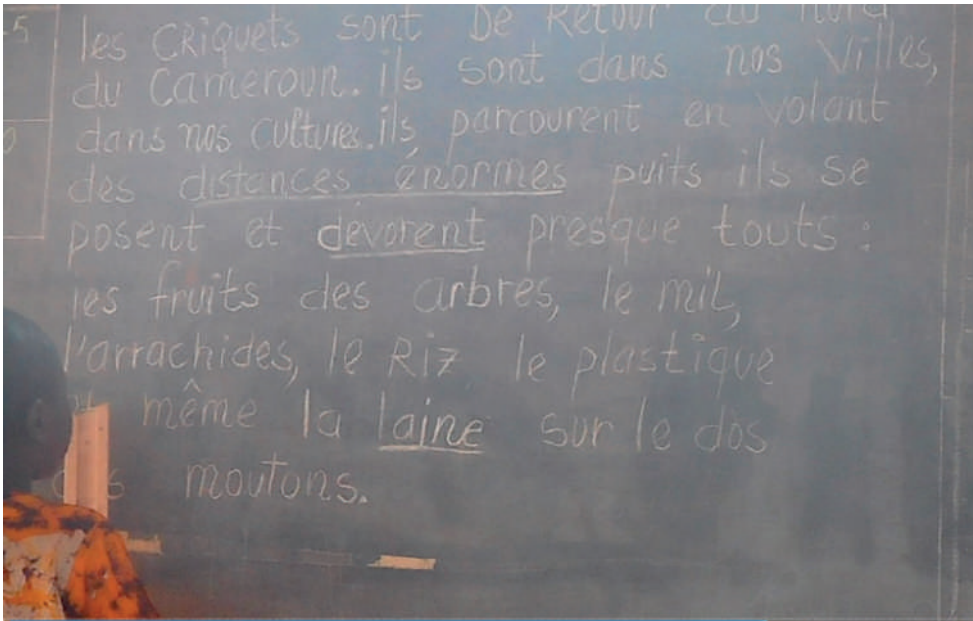 -5
les CRiquets sont De Retour au nord
du Cameroun. ils sont dans nos Villes,
dans nos cultures. ils parcourent en volant
des distances énormes puits ils se
posent et dévorent presque touts :
les fruits des arbres, le mil,
l'arrachides, le Riz le plastique
même la laine sur le dos
des moutons.